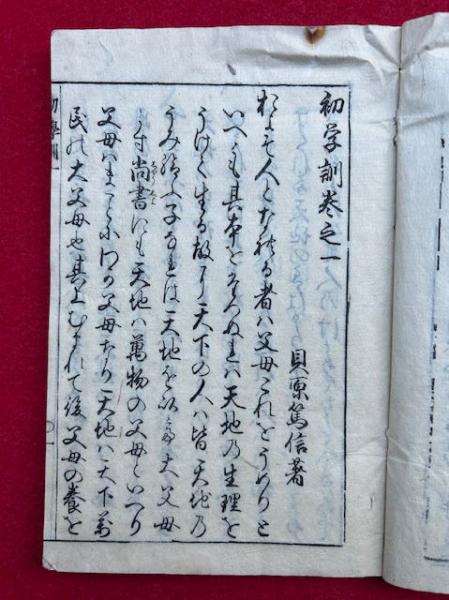 初学訓巻之一
貝原篤信著
おおよそ人となれる者ハ父母これをうめりと
いへども其本をたづぬれハ天地の生理を
うけて生る故に天下の人ハ皆天地の
うみ給へる子なれは天地を以て大父母
とす尚書にも天地ハ萬物の父母といへり
父母ハまことにわが父母なり天地ハ天下萬
民の大父母也其上むまれて後父母の養を
初學訓一